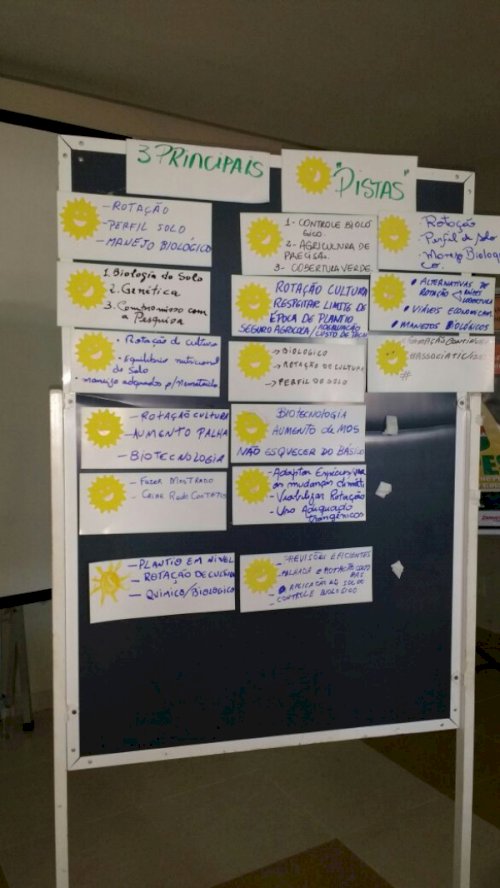 3 PRINCIPAIS
"PISTAS"
- ROTAÇÃO
- PERFIL SOLO
- MANEJO BIOLÓGICO
1 - CONTROLE BIOLÓ
GICO.
2 - AGRICULTURA DE
PRECISÃO.
3 - COBERTURA VERDE.
Rotação
Perfil de Solo
Manejo Biologi
co.
1. Biologia do Solo
2. Genética
3. Compromisso com
a Pesquisa
ROTAÇÃO CULTURA
RESPEITAR LIMITE DE
ÉPOCA DE PLANTIO
SEGURO AGRICOLA/ADEQUAÇÃO
CUSTO DE
ALTERNATIVAS DE
ROTAÇÃO
VIÁVEIS ECONOMICAM.
MANEJOS BIOLOGICOS
- Rotação de cultura
- Equilibrio nutricional
de Solo
- manejo adequado p/ Nematoide
BIOLOGICO
ROTAÇÃO DE CULTURA
PERFIL DO SOLO
ASSOCIATIVISMO
- ROTAÇÃO CULTURA
- AUMENTO PALHA
- BIOTECNOLOGIA
BIOTECNOLOGIA
AUMENTO de MOS
NÃO ESQUECER DO BÁSICO
- FAZER MESTRADO
- CRIAR Rede CONTATOS
- Adaptar Espécies
as mudanças climát.
- Viabilizar Rotação
- Uso Adequado
transgênicos
- PLANTIO EM NÍVEL
- ROTAÇÃO DE CULTURA
- QUÍMICO/BIOLÓGICO
- REVISÕES EFICIENTES
- PALHADA e ROTAÇÃO
- APLICAÇÃO
- CONTROLE BIOLÓGICO